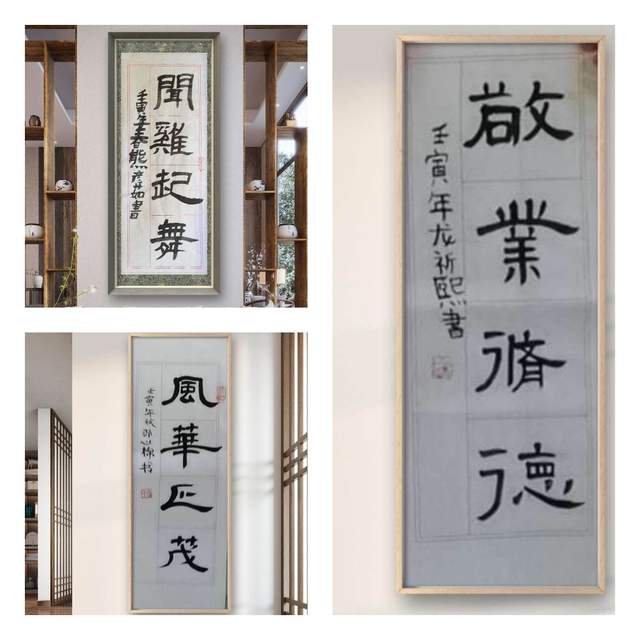 聞雞起舞
壬寅年春熊彦茹書
敬業脩德
壬寅年龙祈熙書
風華正茂
壬寅年秋 书